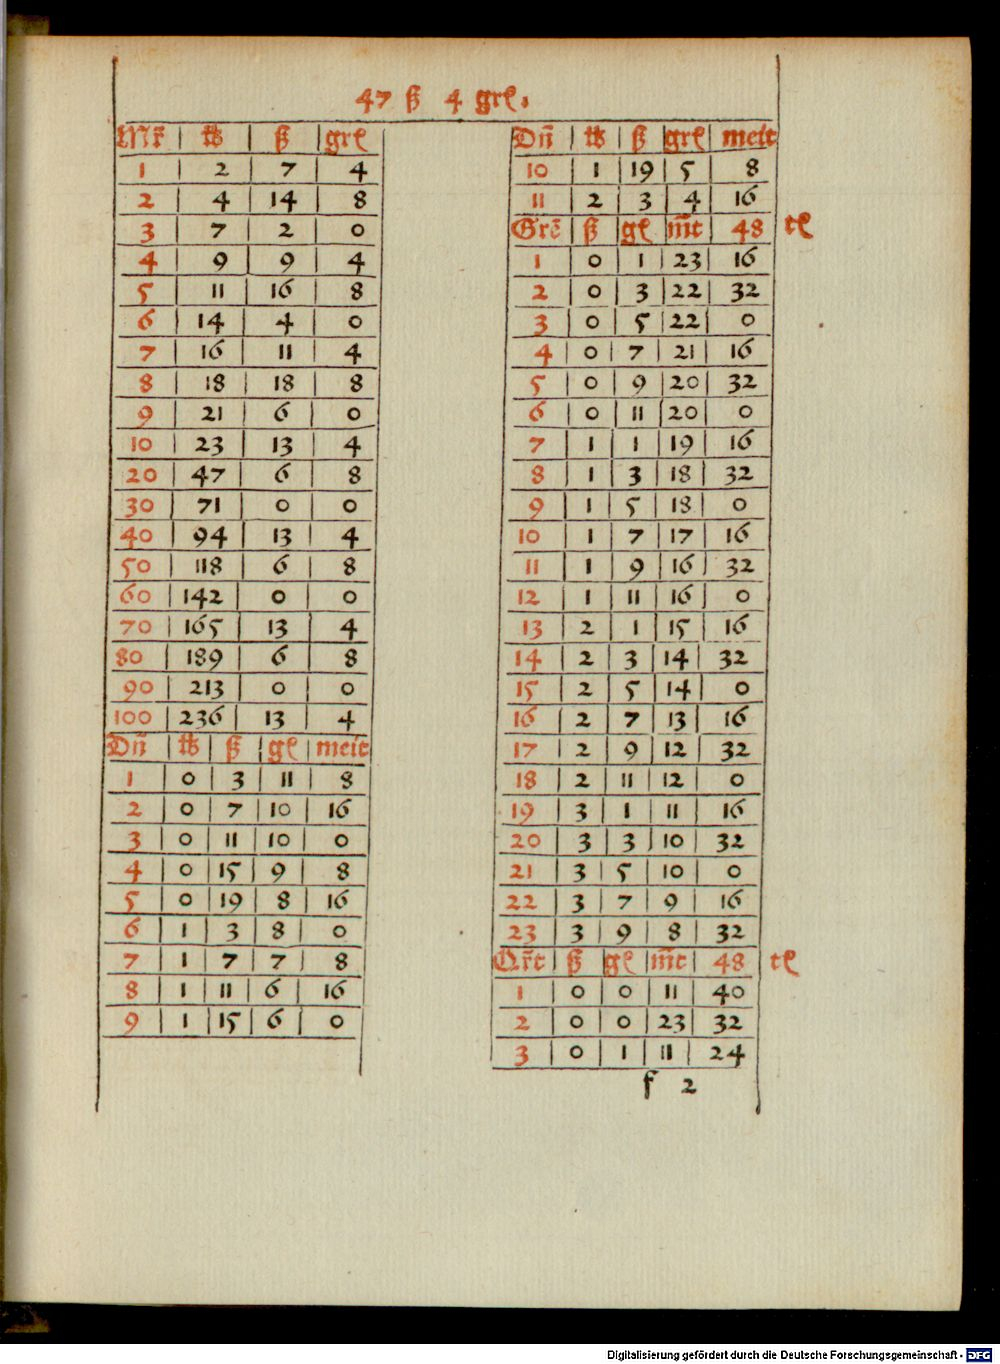 47 ß 4 grꝭ.
Mr̃ | ℔ | ß | grꝭ
1 | 2 | 7 | 4
2 | 4 | 14 | 8
3 | 7 | 2 | 0
4 | 9 | 9 | 4
5 | 11 | 16 | 8
6 | 14 | 4 | 0
7 | 16 | 11 | 4
8 | 18 | 18 | 8
9 | 21 | 6 | 0
10 | 23 | 13 | 4
20 | 47 | 6 | 8
30 | 71 | 0 | 0
40 | 94 | 13 | 4
50 | 118 | 6 | 8
60 | 142 | 0 | 0
70 | 165 | 13 | 4
80 | 189 | 6 | 8
90 | 213 | 0 | 0
100 | 236 | 13 | 4
Dn̄ | ℔ | ß | gꝭ | meit
1 | 0 | 3 | 11 | 8
2 | 0 | 7 | 10 | 16
3 | 0 | 11 | 10 | 0
4 | 0 | 15 | 9 | 8
5 | 0 | 19 | 8 | 16
6 | 1 | 3 | 8 | 0
7 | 1 | 7 | 7 | 8
8 | 1 | 11 | 6 | 16
9 | 1 | 15 | 6 | 0
Dn̄ | ℔ | ß | grꝭ | meit
10 | 1 | 19 | 5 | 8
11 | 2 | 3 | 4 | 16
Grē | ß | gꝭ | m̄t | 48 tꝭ
1 | 0 | 1 | 23 | 16
2 | 0 | 3 | 22 | 32
3 | 0 | 5 | 22 | 0
4 | 0 | 7 | 21 | 16
5 | 0 | 9 | 20 | 32
6 | 0 | 11 | 20 | 0
7 | 1 | 1 | 19 | 16
8 | 1 | 3 | 18 | 32
9 | 1 | 5 | 18 | 0
10 | 1 | 7 | 17 | 16
11 | 1 | 9 | 16 | 32
12 | 1 | 11 | 16 | 0
13 | 2 | 1 | 15 | 16
14 | 2 | 3 | 14 | 32
15 | 2 | 5 | 14 | 0
16 | 2 | 7 | 13 | 16
17 | 2 | 9 | 12 | 32
18 | 2 | 11 | 12 | 0
19 | 3 | 1 | 11 | 16
20 | 3 | 3 | 10 | 32
21 | 3 | 5 | 10 | 0
22 | 3 | 7 | 9 | 16
23 | 3 | 9 | 8 | 32
Qr̄t | ß | gꝭ | m̄t | 48 tꝭ
1 | 0 | 0 | 11 | 40
2 | 0 | 0 | 23 | 32
3 | 0 | 1 | 11 | 24
f 2
Digitalisierung gefördert durch die Deutsche Forschungsgemeinschaft - DFG